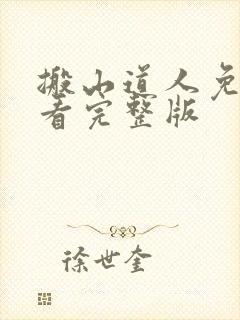 搬山道人免
看完整版
徐世奎